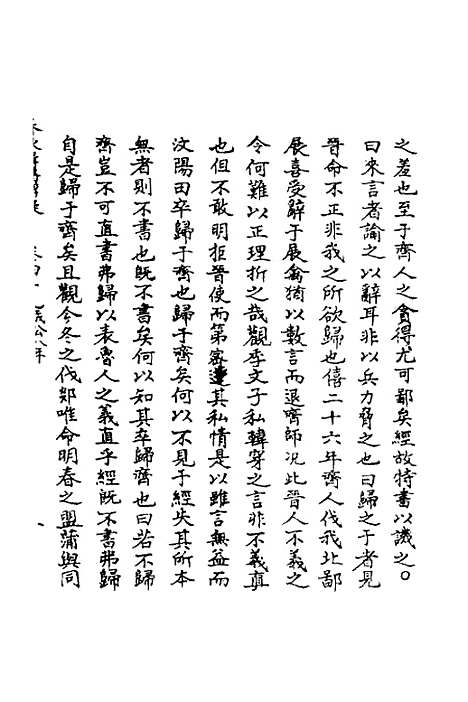 之羞也至于齊人之貪得尤可鄙矣經故特書以譏之○
曰來言者論之以辭耳非以兵力脅之也曰歸之于者見
晉命不正非我之所欲歸也僖二十六年齊人伐我北鄙
展喜受辭于展禽猶以數言而退齊師况此晉人不義之
令何難以正理折之哉觀季文子私韓穿之言非不義直
也但不敢明拒晉使而第審達其私情是以雖言無益而
汶陽田卒歸于齊也歸于齊矣何以不見于經失其所本
無者則不書也既不書矣何以知其卒歸齊也曰若不歸
齊豈不可直書弗歸以表魯人之義直乎經既不書弗歸
自是歸于齊矣且觀今冬之伐郯唯命明春之盟蒲與同
春秋
卷四十 成公八年
八